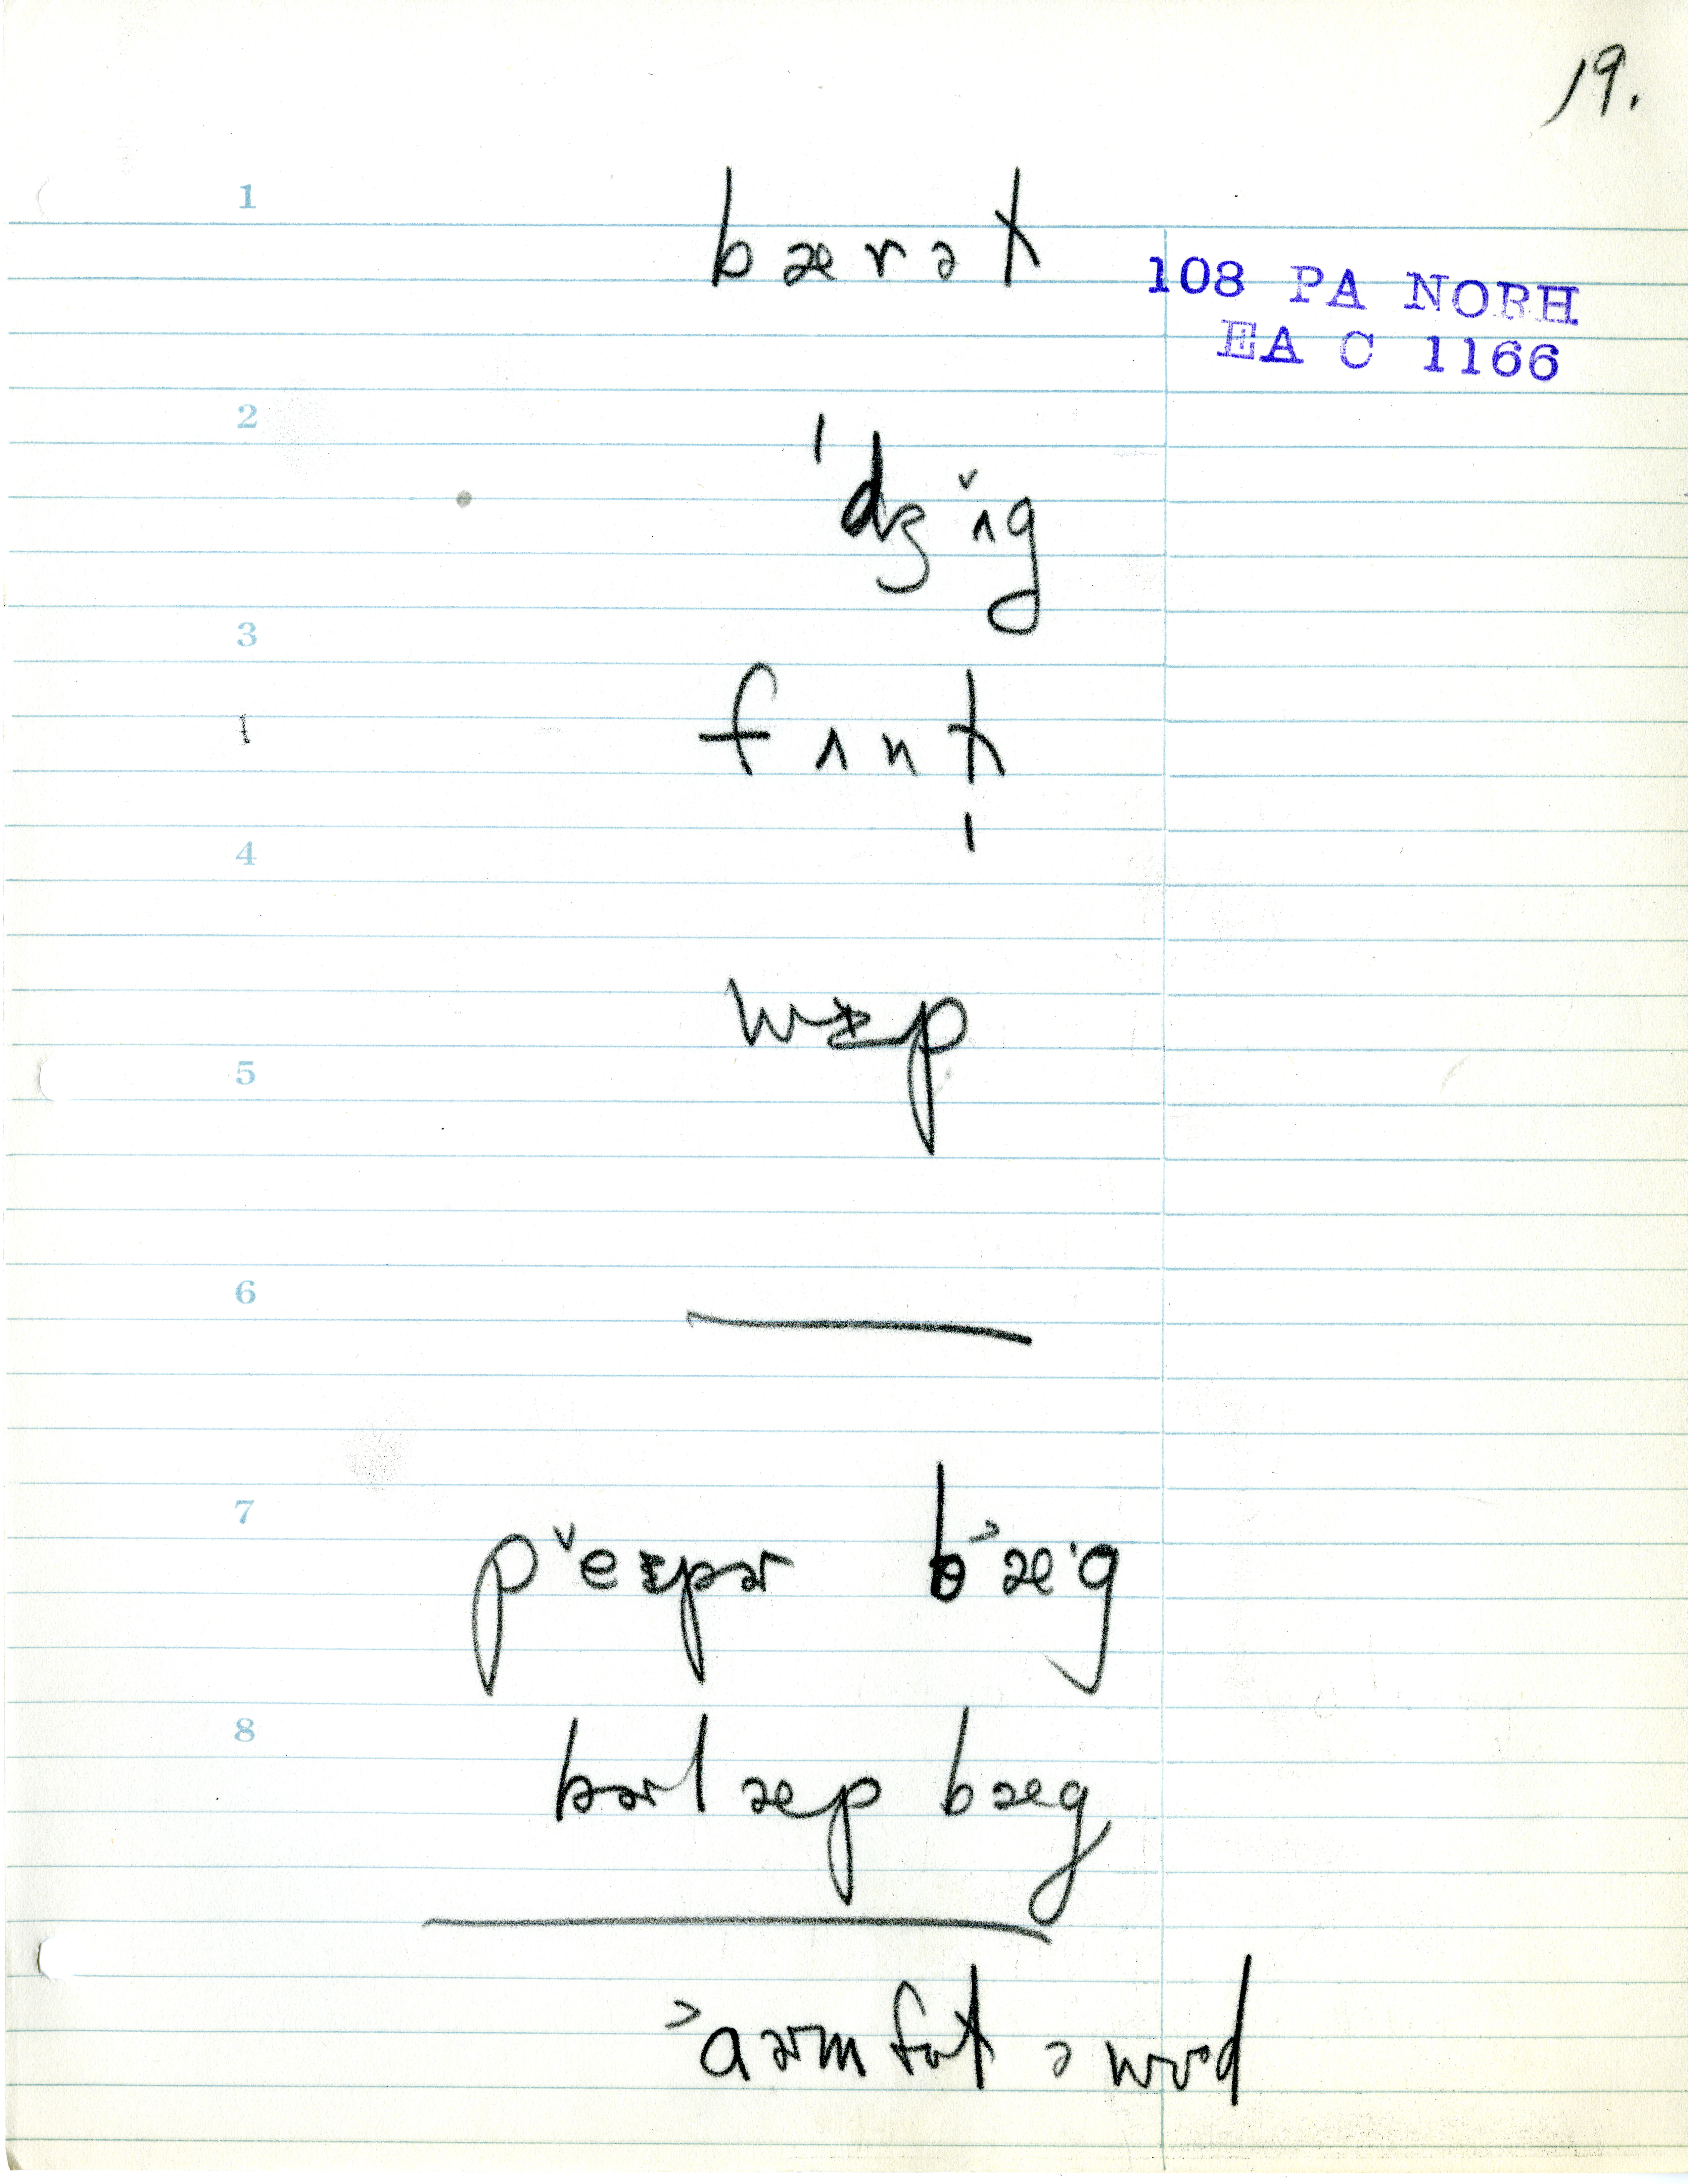 19.
1
bærət
108 PA NORH
EA C 1166
2
ˈdʒˇʌg
3
fʌnt
4
5
6
7
pˇeɪpɚ b˃æˑg
8
bɚlæp bæg
˃aɚm fʊt ə wʊd